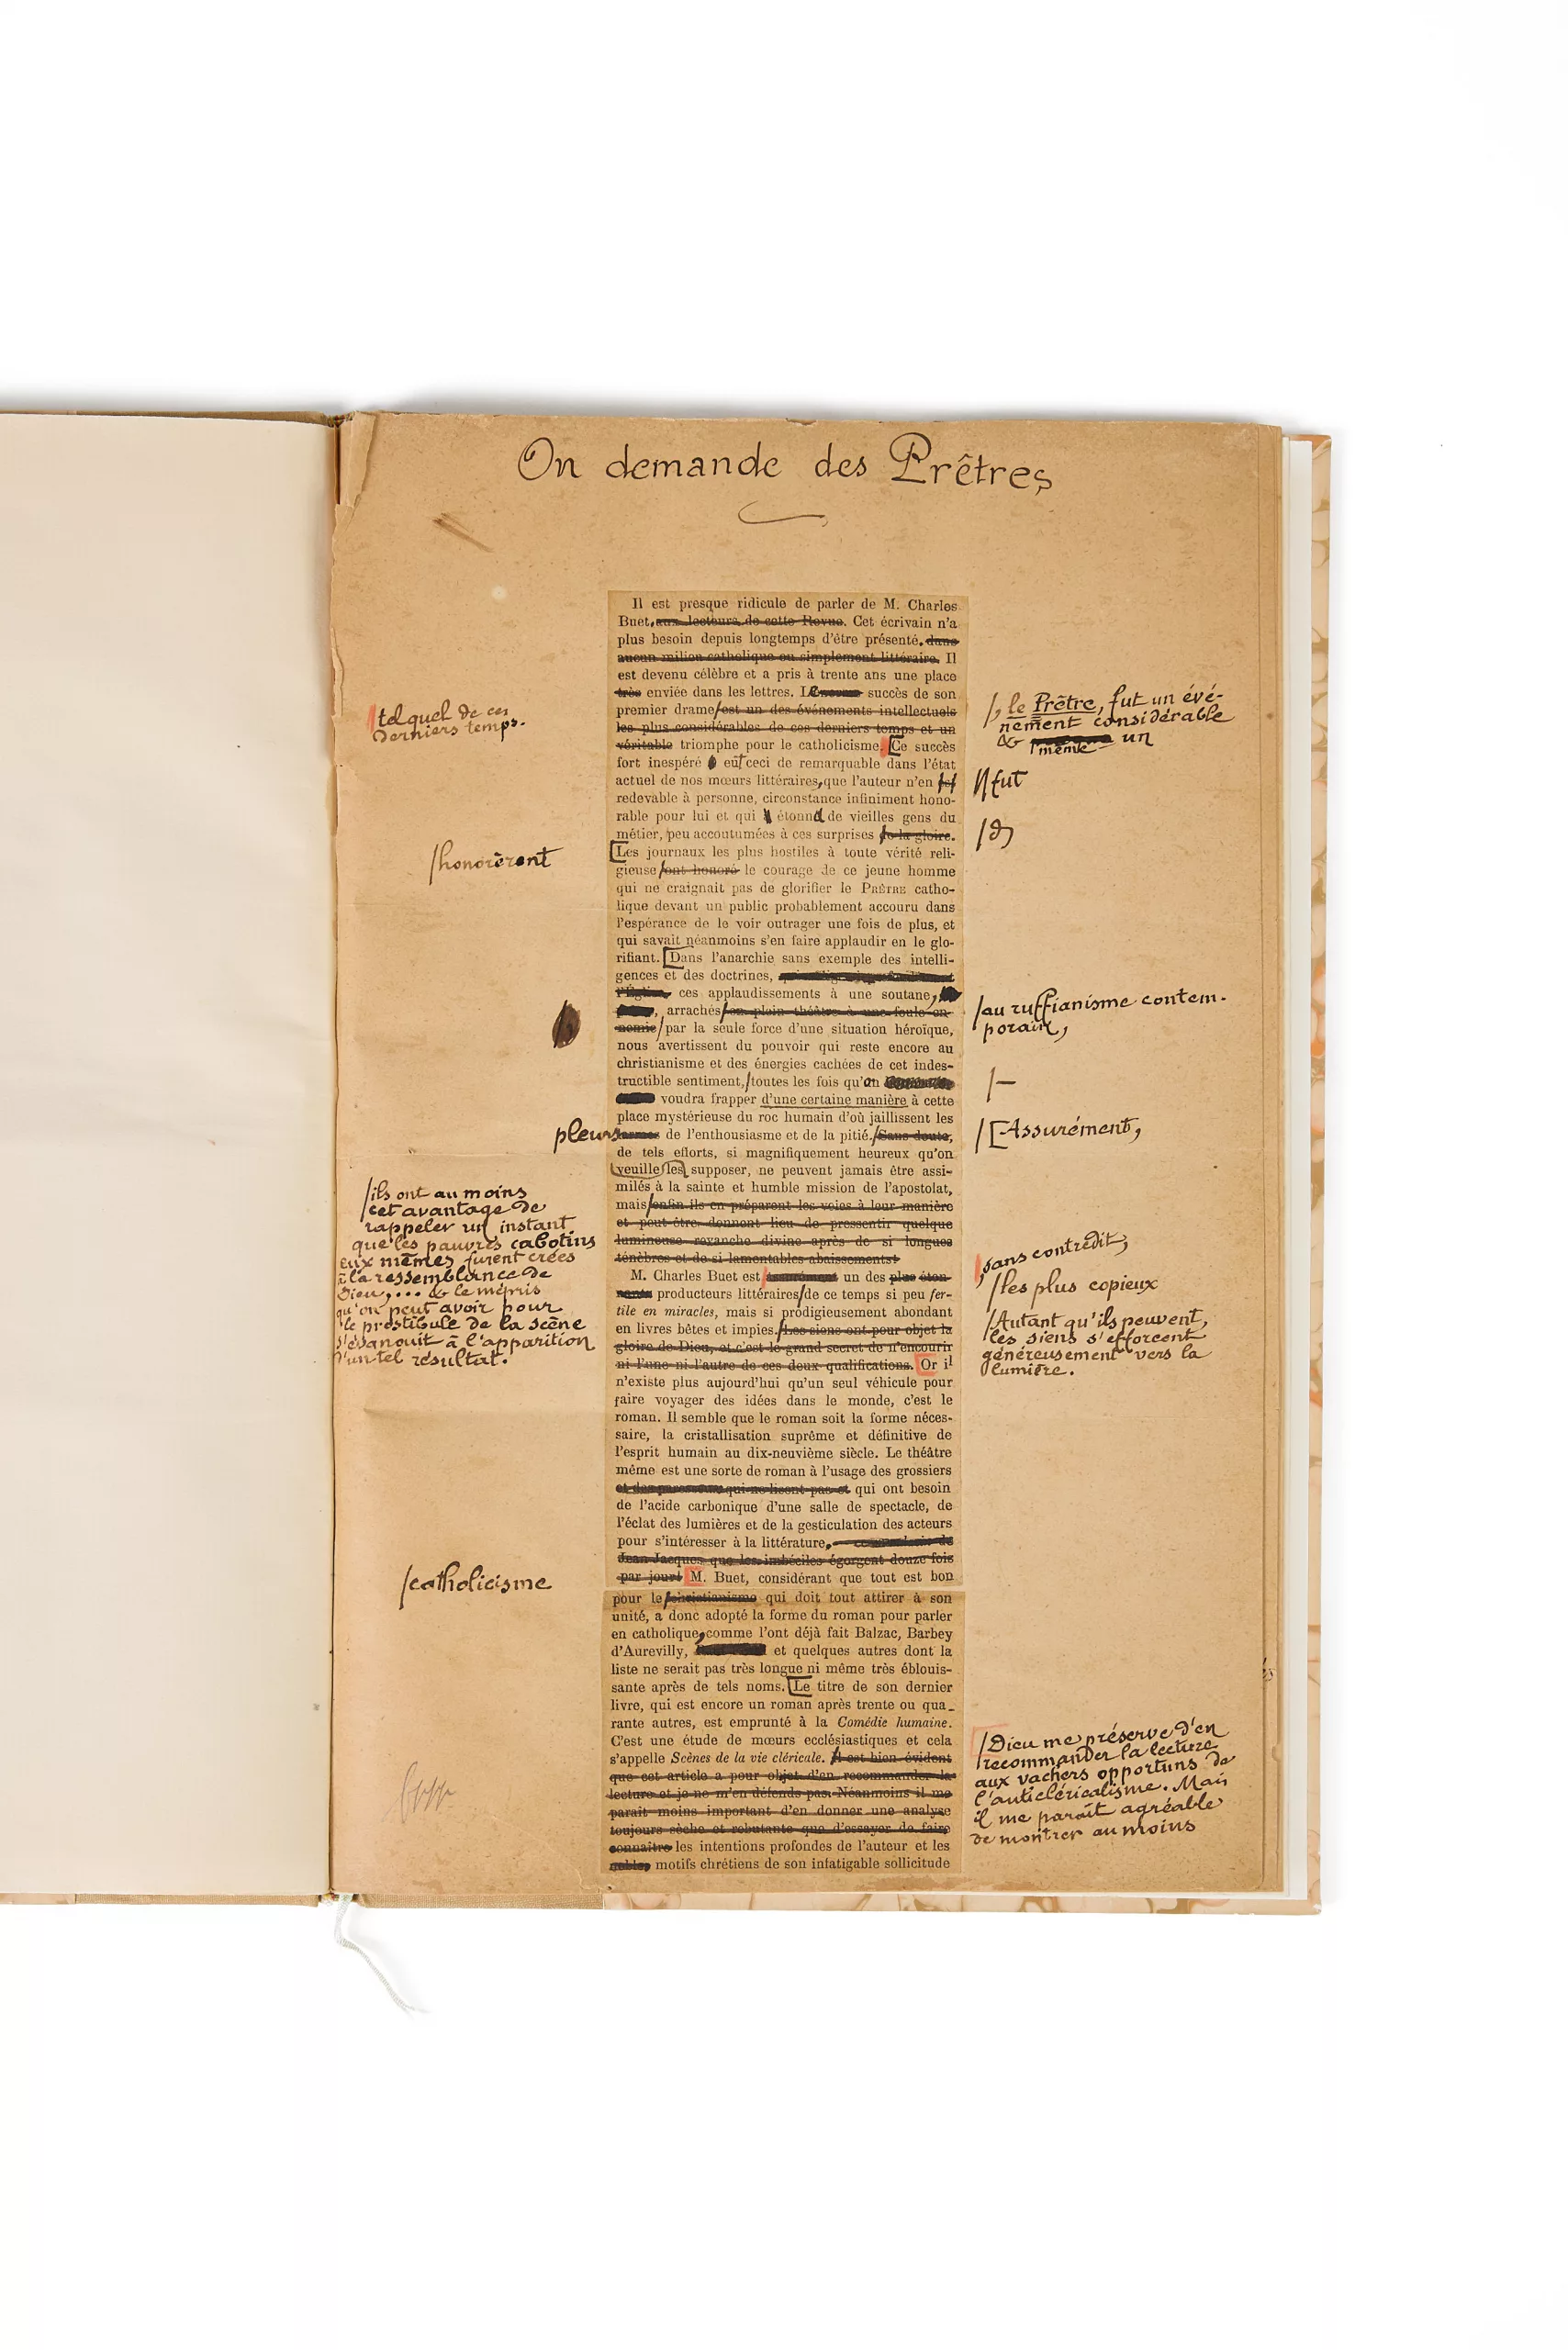 On demande des Prêtres
Il est presque ridicule de parler de M. Charles
Buet, aux lecteurs de cette Revue. Cet écrivain n'a
plus besoin depuis longtemps d'être présenté. dans
aucun milieu catholique ou simplement littéraire. Il
est devenu célèbre et a pris à trente ans une place
très enviée dans les lettres. Le succès de son
premier drame est un des événements intellectuels
les plus considérables de ces derniers temps et un
véritable triomphe pour le catholicisme. Ce succès
fort inespéré eut ceci de remarquable dans l'état
actuel de nos mœurs littéraires, que l'auteur n'en
redevable à personne, circonstance infiniment hono-
rable pour lui et qui étonna de vieilles gens du
métier, peu accoutumées à ces surprises de la gloire.
Les journaux les plus hostiles à toute vérité reli-
gieuse ont honoré le courage de ce jeune homme
qui ne craignait pas de glorifier le PRÊTRE catho-
lique devant un public probablement accouru dans
l'espérance de le voir outrager une fois de plus, et
qui savait néanmoins s'en faire applaudir en le glo-
rifiant. Dans l'anarchie sans exemple des intelli-
gences et des doctrines,
l'Église, ces applaudissements à une soutane,
, arrachés en plein théâtre à une foule en-
nemie par la seule force d'une situation héroïque,
nous avertissent du pouvoir qui reste encore au
christianisme et des énergies cachées de cet indes-
tructible sentiment, toutes les fois qu'on
voudra frapper d'une certaine manière à cette
place mystérieuse du roc humain d'où jaillissent les
larmes de l'enthousiasme et de la pitié. Sans doute,
de tels efforts, si magnifiquement heureux qu'on
veuille les supposer, ne peuvent jamais être assi-
milés à la sainte et humble mission de l'apostolat,
mais enfin ils en préparent les voies à leur manière
et peut-être donnent lieu de pressentir quelque
lumineuse revanche divine après de si longues
ténèbres et de si lamentables abaissements!
M. Charles Buet est assurément un des plus éton-
nants producteurs littéraires de ce temps si peu fer-
tile en miracles, mais si prodigieusement abondant
en livres bêtes et impies. Les siens ont pour objet la
gloire de Dieu, et c'est le grand secret de n'encourir
ni l'une ni l'autre de ces deux qualifications. Or il
n'existe plus aujourd'hui qu'un seul véhicule pour
faire voyager des idées dans le monde, c'est le
roman. Il semble que le roman soit la forme néces-
saire, la cristallisation suprême et définitive de
l'esprit humain au dix-neuvième siècle. Le théâtre
même est une sorte de roman à l'usage des grossiers
et des paresseux qui ne lisent pas et qui ont besoin
de l'acide carbonique d'une salle de spectacle, de
l'éclat des lumières et de la gesticulation des acteurs
pour s'intéresser à la littérature,
Jean-Jacques que les imbéciles égorgent douze fois
par jour! M. Buet, considérant que tout est bon
pour le christianisme qui doit tout attirer à son
unité, a donc adopté la forme du roman pour parler
en catholique, comme l'ont déjà fait Balzac, Barbey
d'Aurevilly, et quelques autres dont la
liste ne serait pas très longue ni même très éblouis-
sante après de tels noms. Le titre de son dernier
livre, qui est encore un roman après trente ou qua-
rante autres, est emprunté à la Comédie humaine.
C'est une étude de mœurs ecclésiastiques et cela
s'appelle Scènes de la vie cléricale. Il est bien évident
que cet article a pour objet d'en recommander la
lecture et je ne m'en défends pas. Néanmoins il me
paraît moins important d'en donner une analyse
toujours sèche et rebutante que d'essayer de faire
connaître les intentions profondes de l'auteur et les
nobles motifs chrétiens de son infatigable sollicitude
tel quel de ces
derniers temps.
honorèrent
pleurs
ils ont au moins
cet avantage de
rappeler un instant
que les pauvres cabotins
eux mêmes furent créés
à la ressemblance de
Dieu,... & le mépris
qu'on peut avoir pour
le prostibule de la scène
s'évanouit à l'apparition
d'un tel résultat.
catholicisme
, le Prêtre, fut un évé-
nement considérable
& même un
fut
au ruffianisme contem-
porain,
[Assurément,
sans contredit,
les plus copieux
Autant qu'ils peuvent,
les siens s'efforcent
généreusement vers la
lumière.
Dieu me préserve d'en
recommander la lecture
aux vachers opportuns de
l'anticléricalisme. Mais
il me paraît agréable
de montrer au moins